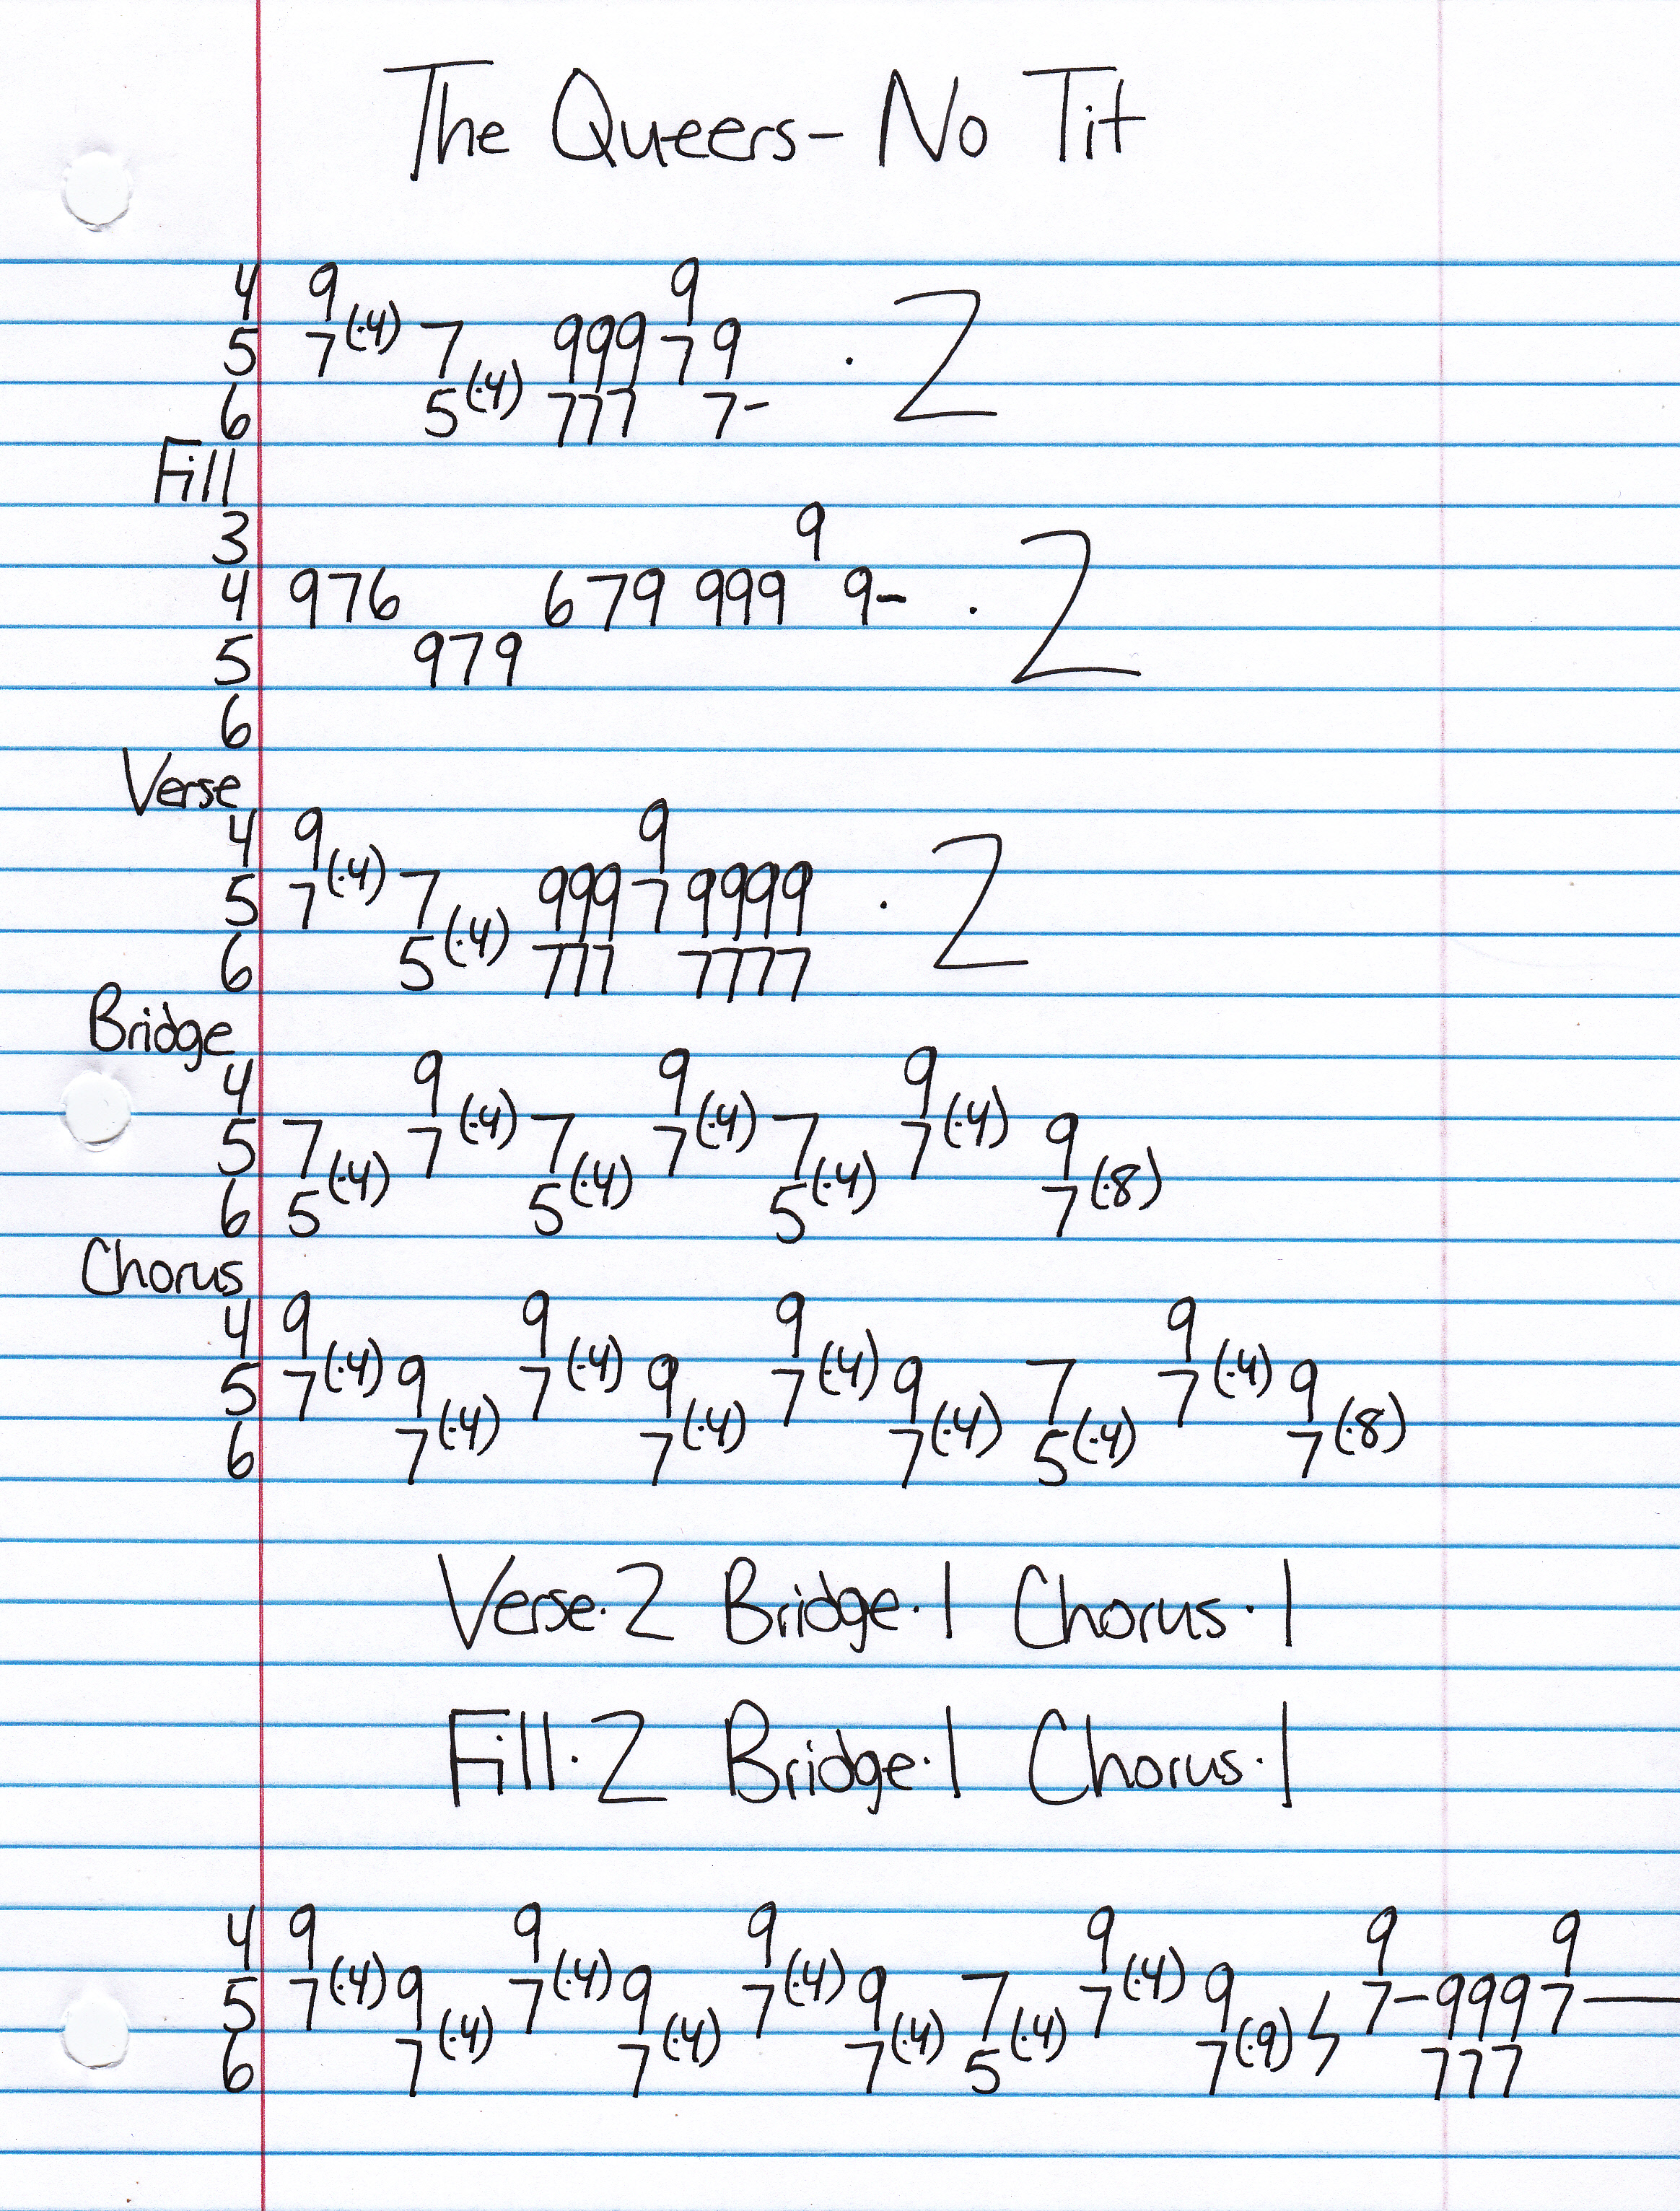 The Queers- No Tit
4 9 9
5 7(·4) 7 999 7 9 · 2
6 5(·4) 777 7-
Fill
3 9
4 976 679 999 9- · 2
5 979
6
Verse
4 9 9
5 7(·4) 7 999 7 9999 · 2
6 5(·4) 777 7777
Bridge
4 9 9 9
5 7 7(·4) 7 7(·4) 7 7(·4) 9
6 5(·4) 5(·4) 5(·4) 7(·8)
Chorus
4 9 9 9 9
5 7(·4) 9 7(·4) 9 7(·4) 9 7 7(·4) 9
6 7(·4) 7(·4) 7(·4) 5(·4) 7(·8)
Verse·2 Bridge·1 Chorus·1
Fill·2 Bridge·1 Chorus·1
4 9 9 9 9 9 9
5 7(·4) 9 7(·4) 9 7(·4) 9 7 7(·4) 9 7-999 7-
6 7(·4) 7(·4) 7(·4) 5(·4) 7(·9) 777